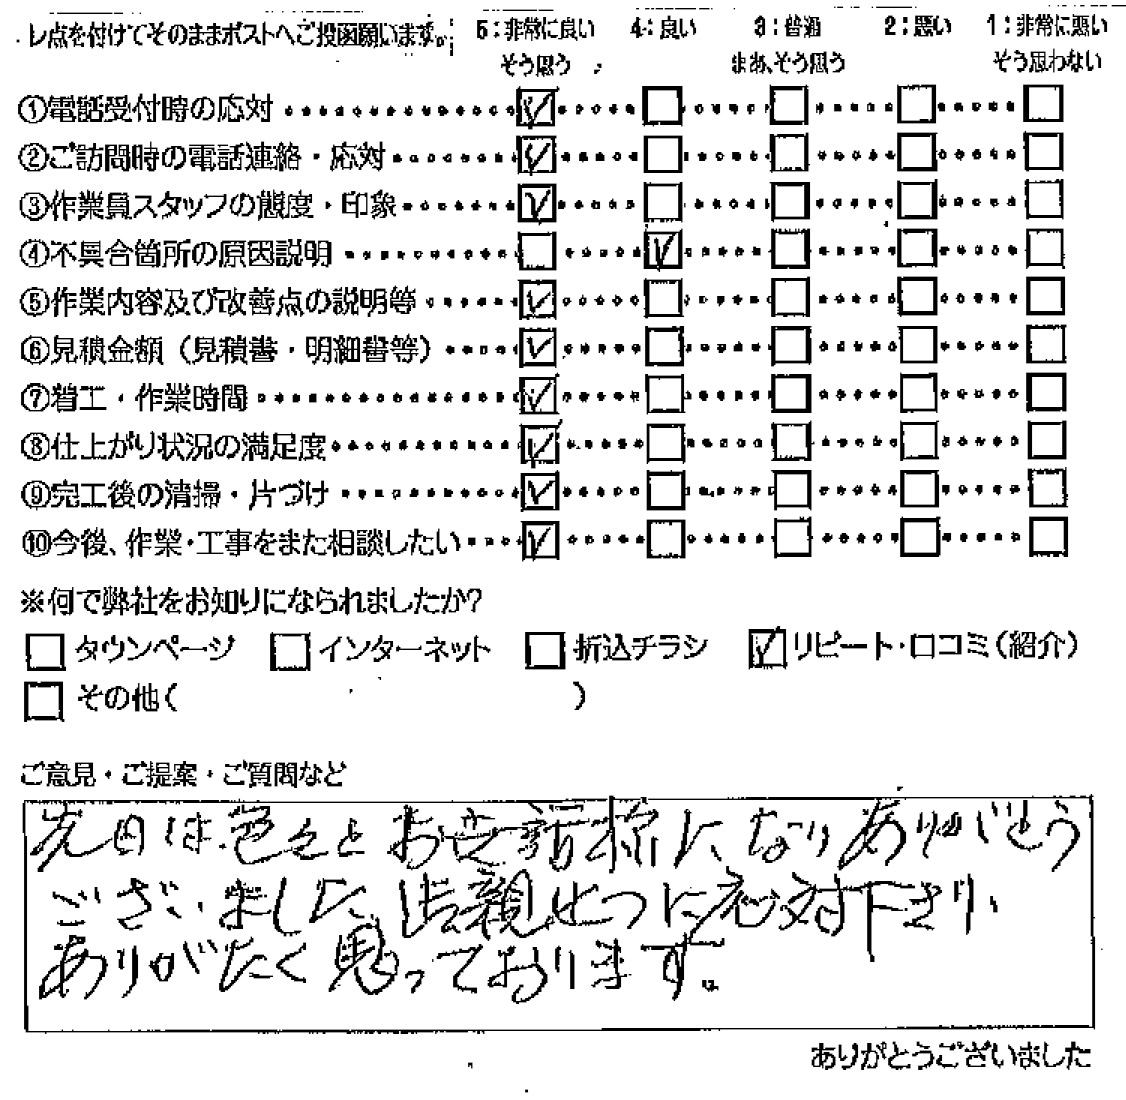 レ点を付けてそのままポストへご投函願います。 5:非常に良い 4:良い 3:普通 2:悪い 1:非常に悪い
そう思う まあ、そう思う そう思わない
①電話受付時の応対
②ご訪問時の電話連絡・応対
③作業員スタッフの態度・印象
④不具合箇所の原因説明
⑤作業内容及び改善点の説明等
⑥見積金額(見積書・明細書等)
⑦着工・作業時間
⑧仕上がり状況の満足度
⑨完工後の清掃・片づけ
⑩今後、作業・工事をまた相談したい
※何で弊社をお知りになられましたか?
タウンページ インターネット 折込チラシ リピート・口コミ(紹介)
その他( )
ご意見・ご提案・ご質問など
先日は色々とお世話様になりありがとう
ございました。親せつに応対下さり、
ありがたく思っております。
ありがとうございました